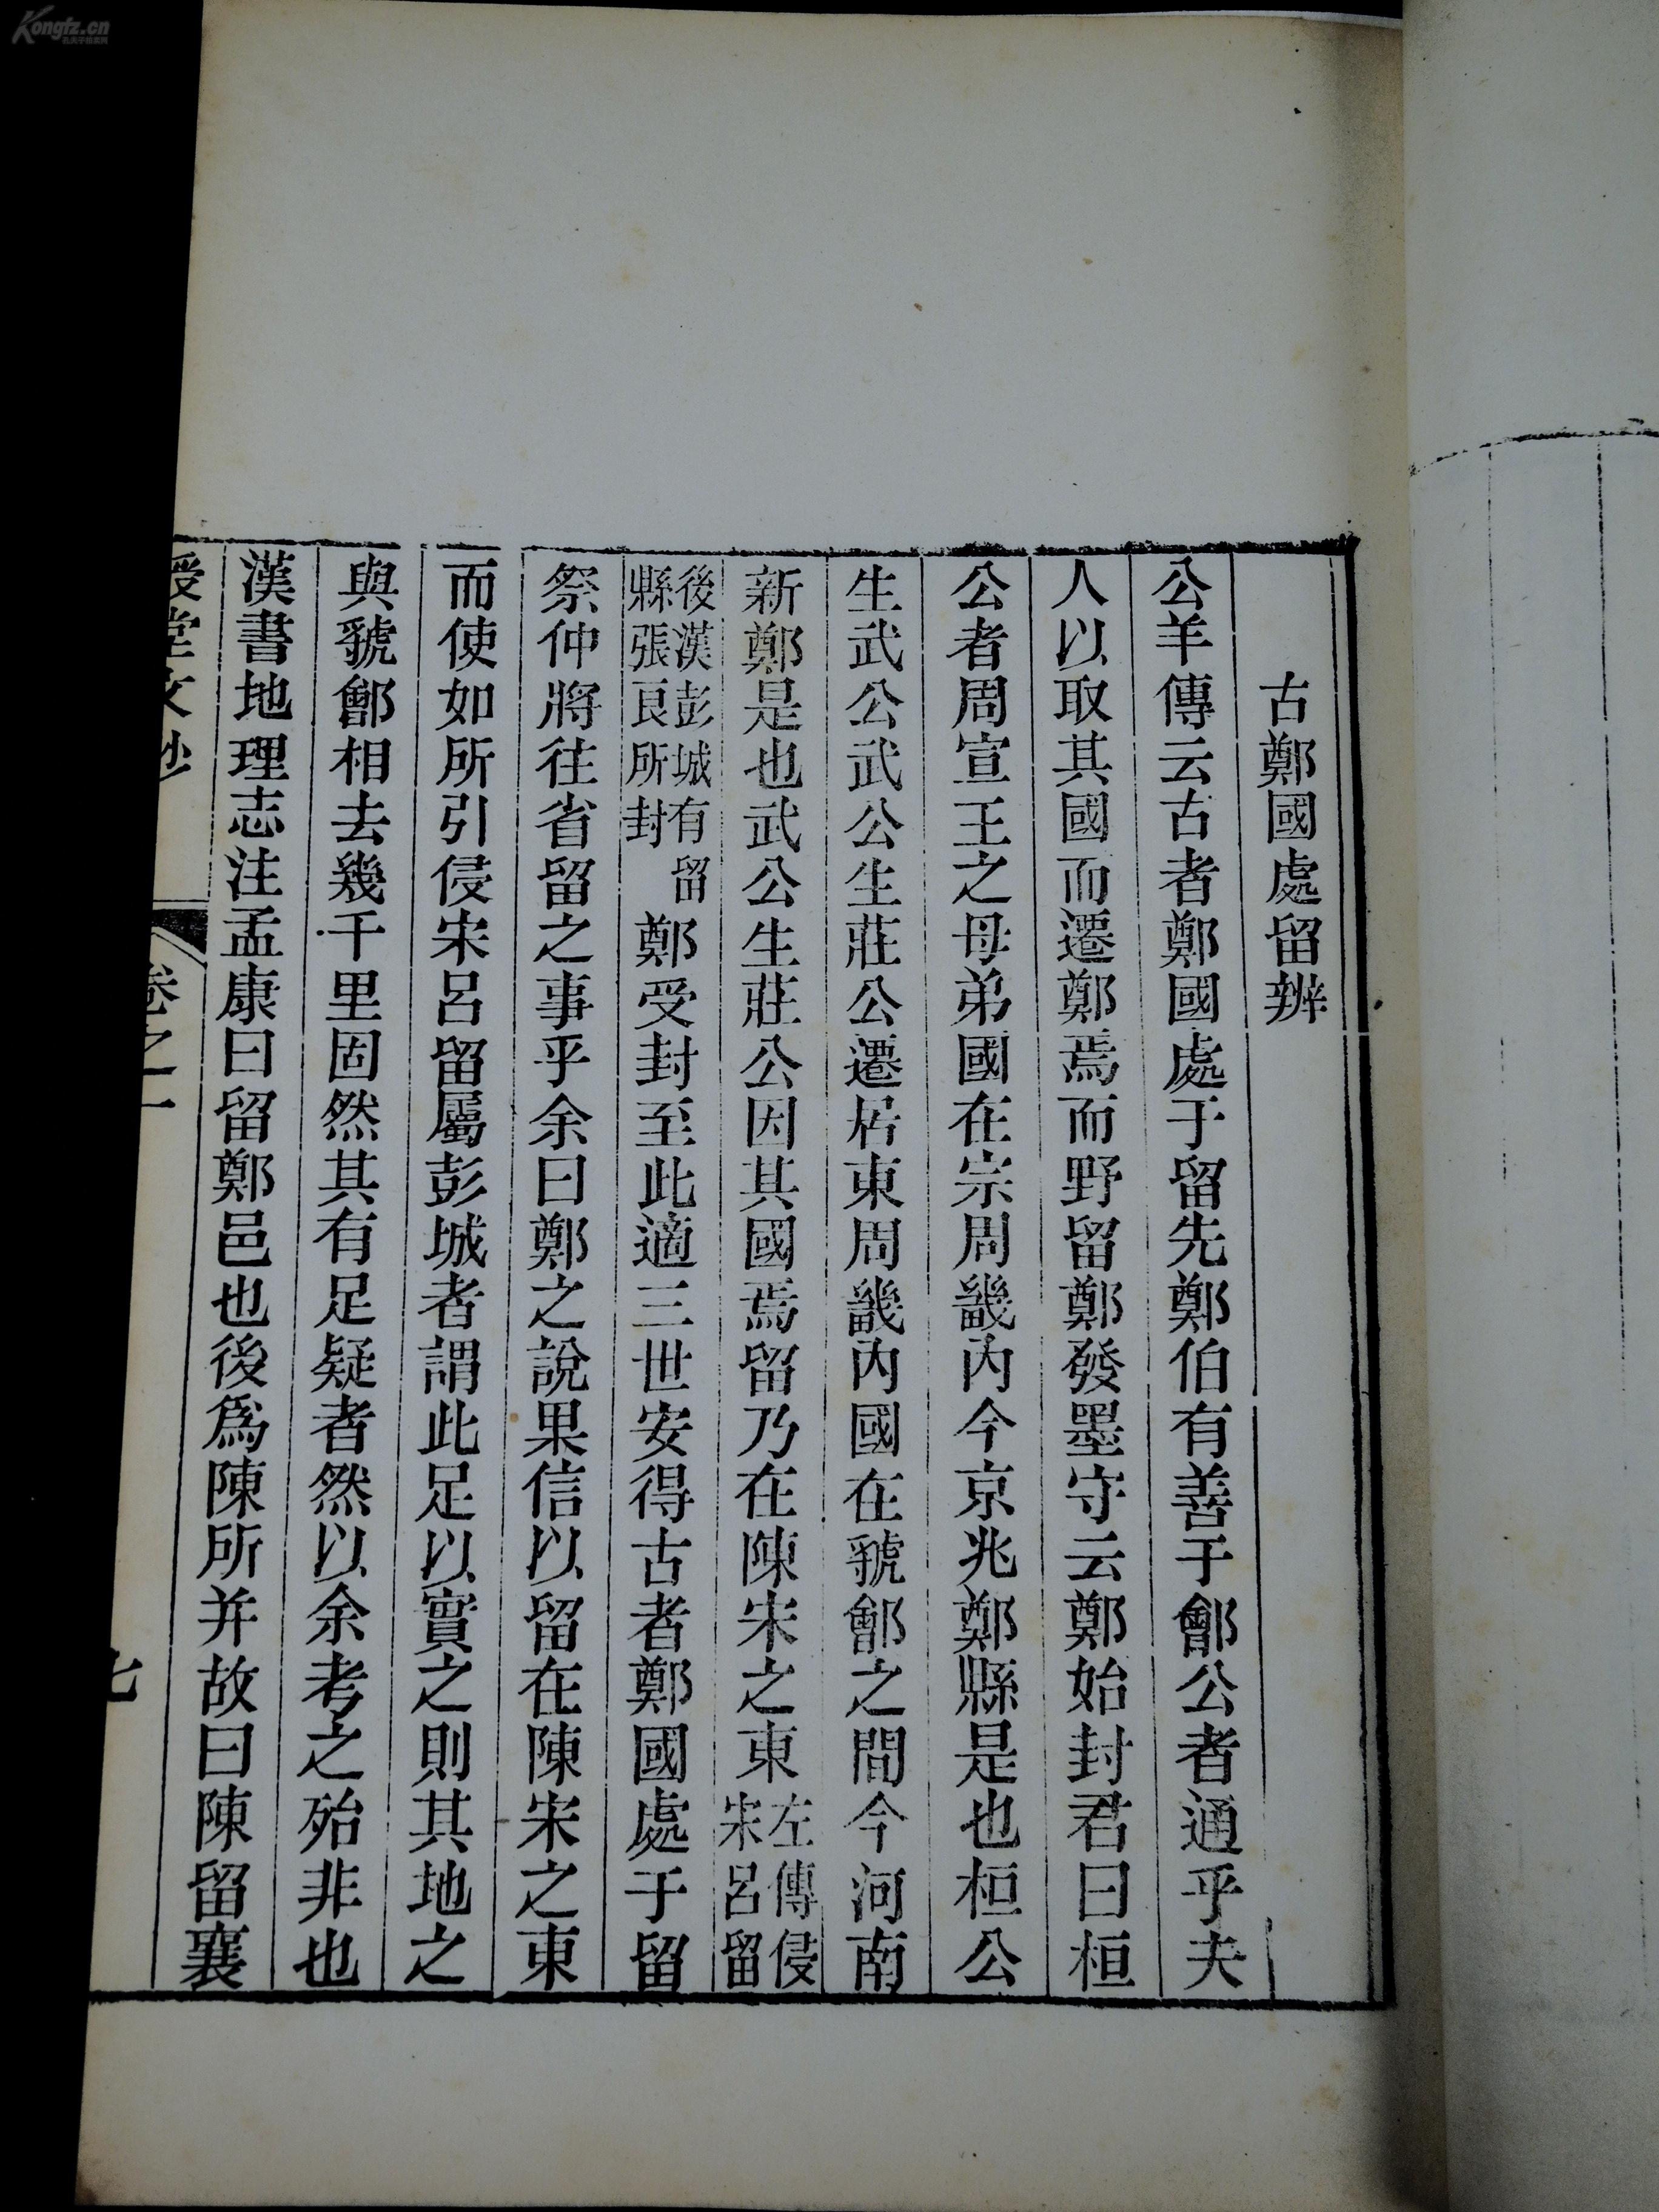 Kongfz.cn
古鄭國處留辨
公羊傳云古者鄭國處于留先鄭伯有善于鄶公者通乎夫
人以取其國而遷鄭焉而野留鄭發墨守云鄭始封君曰桓
公者周宣王之母弟國在宗周畿內今京兆鄭縣是也桓公
生武公武公生莊公遷居東周畿內國在虢鄶之間今河南
新鄭是也武公生莊公因其國焉留乃在陳宋之東左傳侵宋呂留
後漢彭城有留縣張良所封鄭受封至此適三世安得古者鄭國處于留
祭仲將往省留之事乎余曰鄭之說果信以留在陳宋之東
而使如所引侵宋呂留屬彭城者謂此足以實之則其地之
與虢鄶相去幾千里固然其有足疑者然以余考之殆非也
漢書地理志注孟康曰留鄭邑也後爲陳所并故曰陳留襄
授堂文鈔 卷之一 七